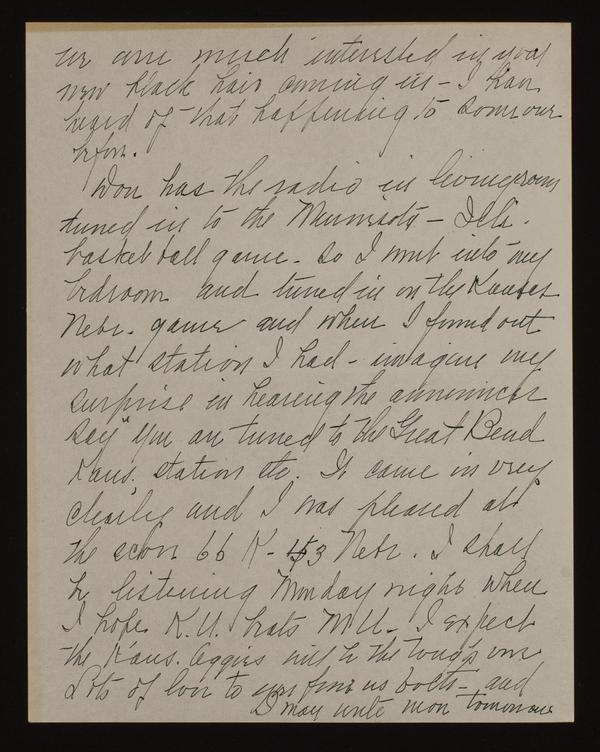 we are much interested in your
new black hair coming in - I have
heard of that happening to someone
before.
Don has the radio in livingroom
tuned in to the Minnisota - Ills.
basket ball game. So I went into my
bedroom and tuned in on the Kansas
Nebr. game and when I found out
what station I had - imagine my
surprise in hearing the announcer
say "you are tuned to the Great Bend
Kans. station etc. It came in very
clearly and I was pleased at
the score 66 K - 53 Nebr. I shall
be listening Monday night when
I hope K.U. beats MU - I expect
the Kans. Aggies will be the tough one
Lots of love to you from us both - and
I may write more tomorrow